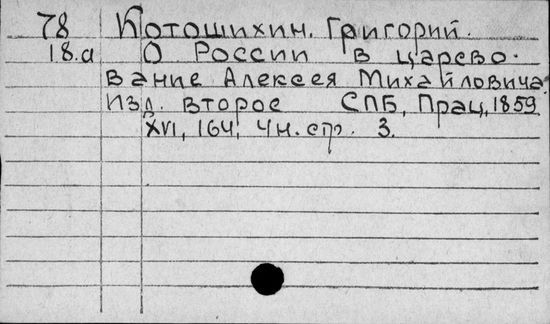 78 Котошихин. Григорий.
18.а О России в царево-
вание Алексея Михайловича.
Изд. второе СПБ, Прац, 1859
XVI, 164, 4н. стр. 3.